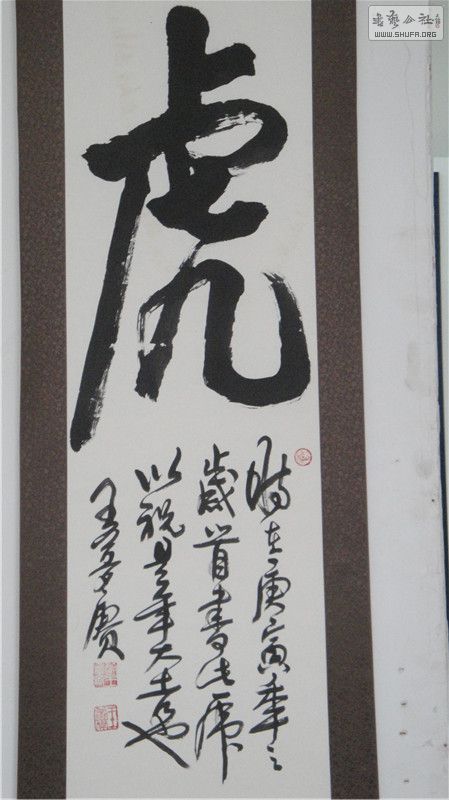 虎
時在庚寅年之
歲首書此虎
以祝是年大吉也
王
書藝公社
WWW.SHUFA.ORG